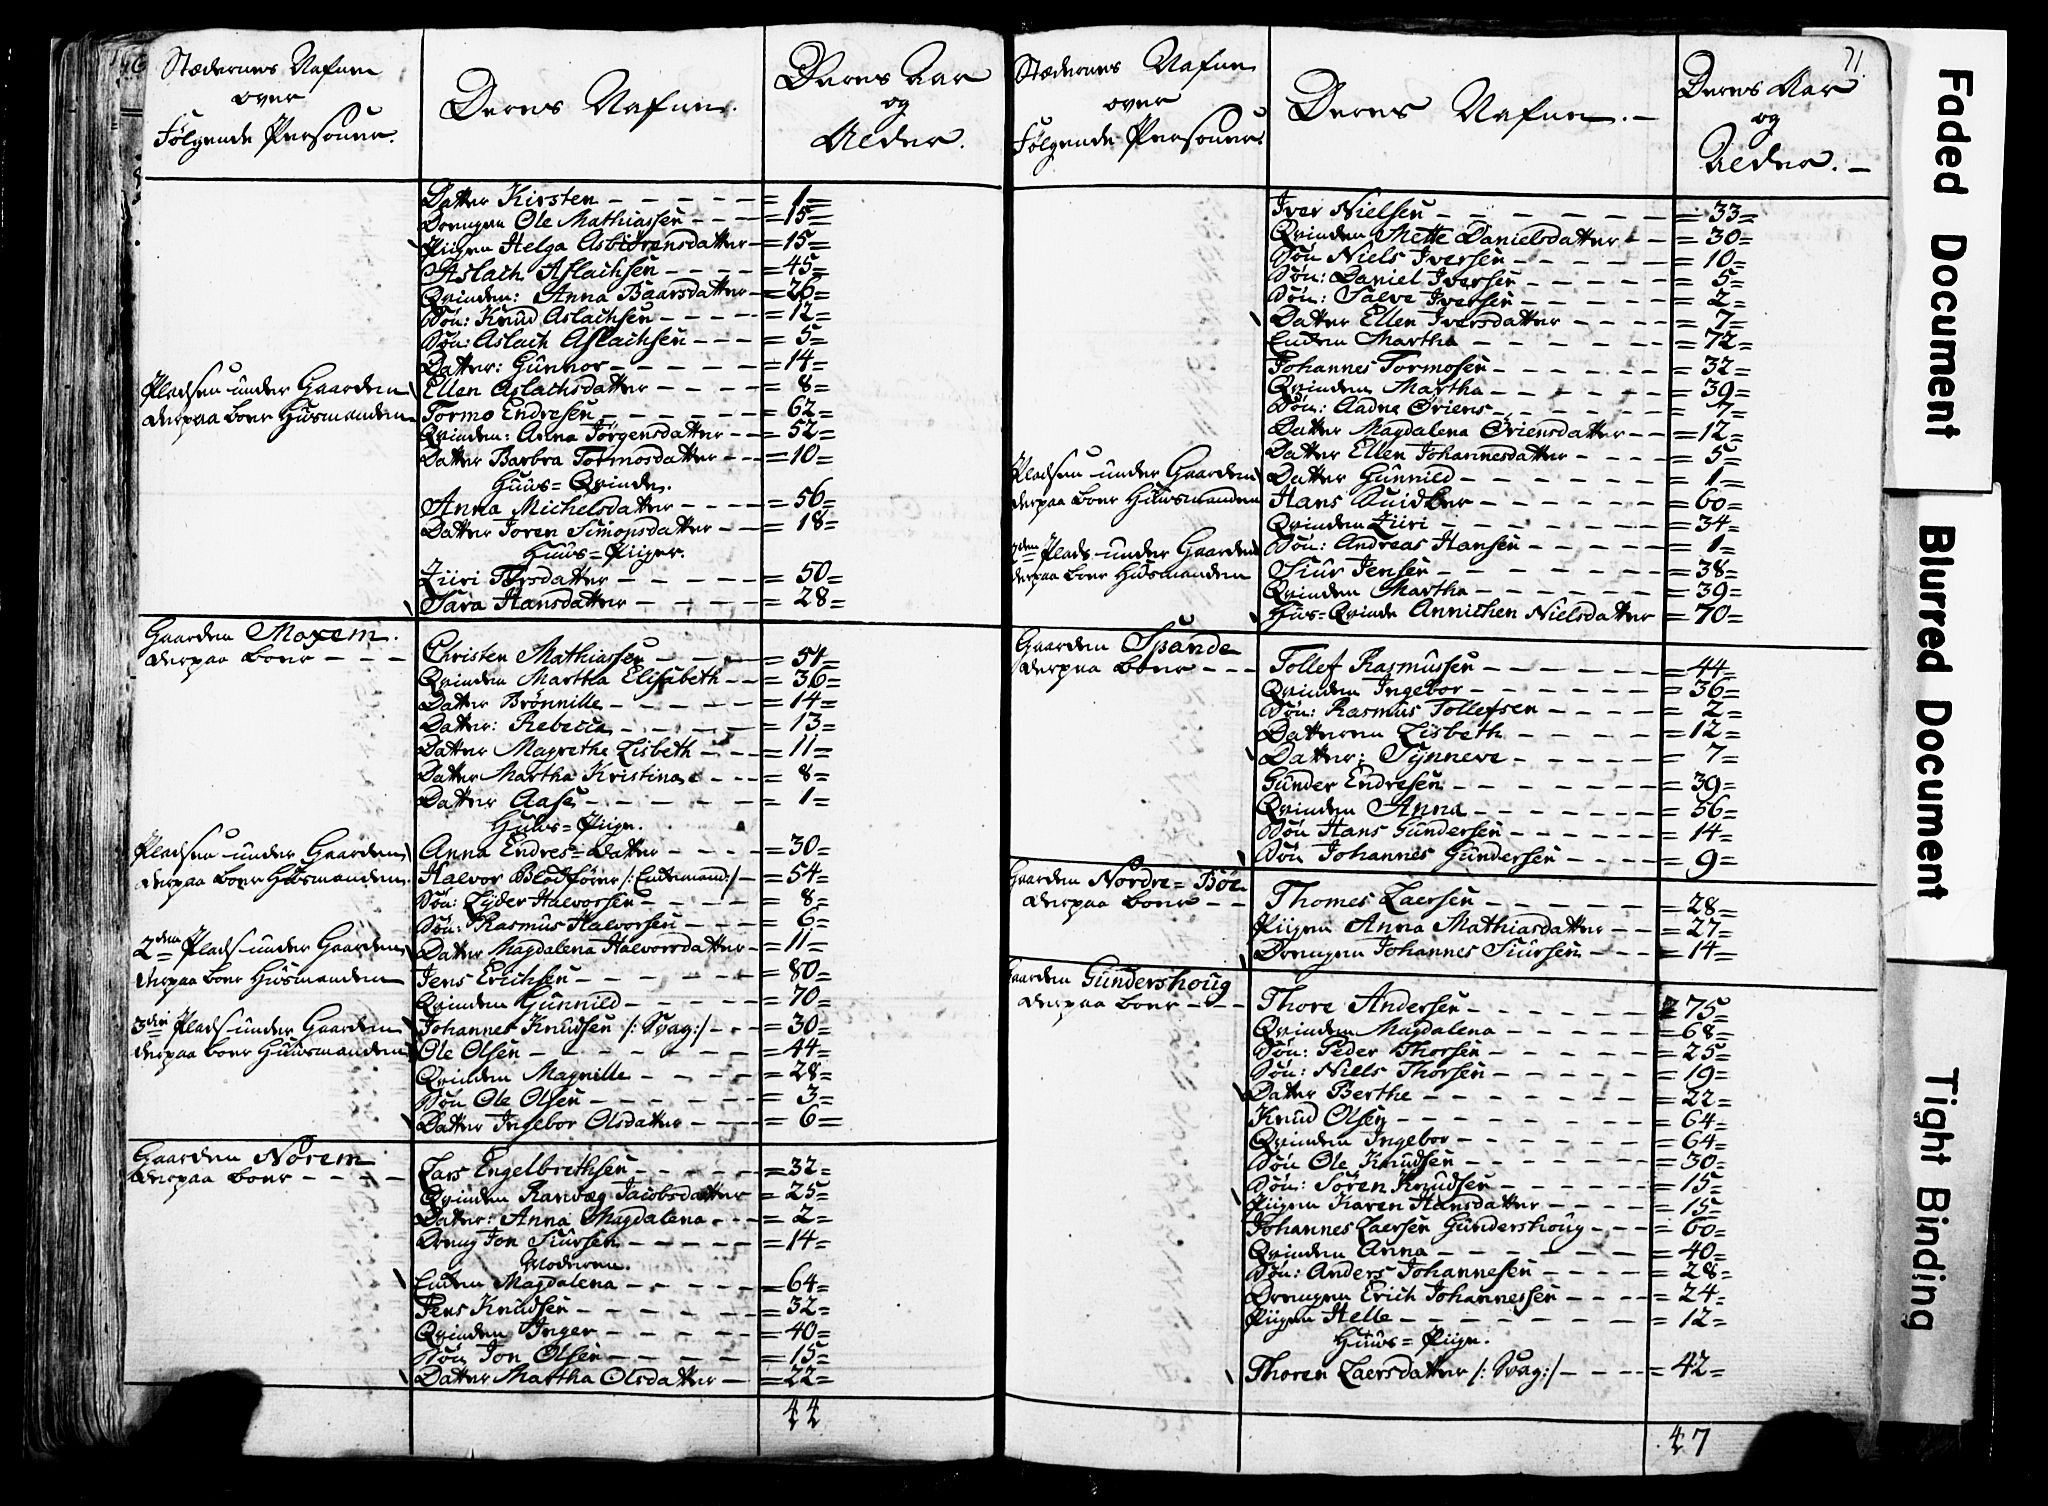 Stædernes Nafne
over
Følgende Personer.
Deres Nafne.
Deres Aar
og
Alder.
Datter Kirsten - - - - = 1 =
Drengen Ole Mathiassen - - - = 15 =
Piigen Helga Asbiörensdatter - = 15 =
Aslach Aslachsen - - - - = 45 =
Qvinden: Anna Baarsdatter - = 26 =
Søn: Knud Aslachsen - - - - = 12 =
Søn: Aslach Aslachsen - - - = 5 =
Datter: Gunnor - - - - - = 14 =
Pladsen under Gaarden Ellen Aslachsdatter - - - - = 8 =
derpaa boer Huusmanden Tormo Endresen - - - - - = 62 =
Qvinden: Anna Jörgensdatter - - = 52 =
Datter Barbra Tormosdatter - - = 10 =
Huus=Qvinde.
Anna Michelsdatter - - - - = 56 =
Datter Joren Simonsdatter - - = 18 =
Huus=Piiger.
Ziiri Torsdatter - - - - - = 50 =
Sara Hansdatter - - - - = 28 =
Gaarden Moxem.
derpaa boer - - - Christen Mathiassen - - - = 54 =
Qvinden Martha Elisabeth - - = 36 =
Datter Brönnille - - - - - = 14 =
Datter: Rebecca - - - - = 13 =
Datter Magrethe Lisbeth - - - = 11 =
Datter Martha Kristina - - - = 8 =
Datter Aase - - - - - = 1 =
Huus=Piige.
Pladsen under Gaarden Anna Endres=Datter - - - - = 30 =
derpaa boer Huusmanden Halvor Blodföer /: Enkemand:/ - = 54 =
Søn: Lyder Halvorsen - - - - = 8 =
Søn: Rasmus Halvorsen - - - = 6 =
2den Plads under Gaarden Datter Magdalena Halvorsdatter - = 11 =
derpaa boer Huusmanden Jens Erichsen - - - - - = 80 =
Qvinden Gunnild - - - - - = 70 =
3die Plads under Gaarden Johannes Knudsen /: Svag:/ - - - = 30 =
derpaa boer Huusmanden Ole Olsen - - - - - - = 44 =
Qvinden Magnille - - - - = 28 =
Søn Ole Olsen - - - - - = 3 =
Datter Ingebor Olsdatter - - - = 6 =
Gaarden Nörem
derpaa boer - - - - Lars Engelbrethsen - - - - - = 32 =
Qvinden Randæg Jacobsdatter = 25 =
Datter: Anna Magdalena - - - = 2 =
Dreng Jon Siursen - - - - - = 14 =
Moderen.
Enken Magdalena - - - - - = 64 =
Jens Knudsen - - - - - - = 32 =
Qvinden Inger - - - - - = 40 =
Søn Jon Olsen - - - - - = 15 =
Datter Martha Olsdatter - = 22 =
44
71.
Stædernes Nafne
over
Følgende Personer
Deres Nafne. -
Deres Aar
og
Alder. -
Iver Nielsen - - - - - - = 33 =
Qvinden Mette Danielsdatter - - = 30 =
Søn Niels Iversen - - - - - = 10 =
Søn: Daniel Iversen - - - - - = 5 =
Søn: Salve Iversen - - - - - = 2 =
Datter Ellen Iversdatter - - - - = 7 =
Enken Martha - - - - - - = 72 =
Johannes Tormosen - - - - - = 32 =
Qvinden Martha - - - - - - = 39 =
Søn: Aadne Öriens - - - - - = 7 =
Datter Magdalena Öriensdatter - - = 12 =
Datter Ellen Johannesdatter - - - - = 5 =
Pladsen under Gaarden Datter Gunnild - - - - - - = 1 =
derpaa boer Huusmanden Hans Quidber - - - - - - = 60 =
Qvinden Ziiri - - - - - - = 34 =
2den Plads under Gaarden Søn: Andreas Hansen - - - - - = 1 =
derpaa boer Huusmanden Siur Jensen - - - - - - = 38 =
Qvinden Martha - - - - - - = 39 =
Huus=Qvinde Annichen Nielsdatter = 70 =
Gaarden Spande
derpaa boer - - - Tollef Rasmussen - - - - - = 44 =
Qvinden Ingebor - - - - - - = 36 =
Søn: Rasmus Tollefsen - - - - = 2 =
Datteren Lisbeth - - - - - = 12 =
Datter: Synneve - - - - - = 7 =
Gunder Endresen - - - - - - = 39 =
Qvinden Anna - - - - - - = 56 =
Søn Hans Gundersen - - - - - = 14 =
Søn Johannes Gundersen - - - - = 9 =
Gaarden Nordre=Böe
derpaa boer - - Thomes Laersen - - - - - = 28 =
Piigen Anna Mathiasdatter - - = 27 =
Drengen Johannes Siursen - - - = 14 =
Gaarden Gundershoug
derpaa boer - - - Thore Andersen - - - - - = 75 =
Qvinden Magdalena - - - - - = 68 =
Søn: Peder Thorsen - - - - - = 25 =
Søn: Niells Thorsen - - - - - = 19 =
Datter Berthe - - - - - - = 22 =
Knud Olsen - - - - - - = 64 =
Qvinden Ingebor - - - - - - = 64 =
Søn Ole Knudsen - - - - - - = 30 =
Søn: Sören Knudsen - - - - - = 15 =
Piigen Karen Hansdatter - - - - = 15 =
Johannes Laersen Gundershoug - - - = 60 =
Qvinden Anna - - - - - - = 40 =
Søn: Anders Johannesen - - - - = 28 =
Drengen Erich Johannessen - - - - = 24 =
Piigen Helle - - - - - - - = 12 =
Huus=Piige.
Thoren Laersdatter /: Svag:/ - - - - = 42 =
47
Faded Document
Blurred Document
Tight Binding